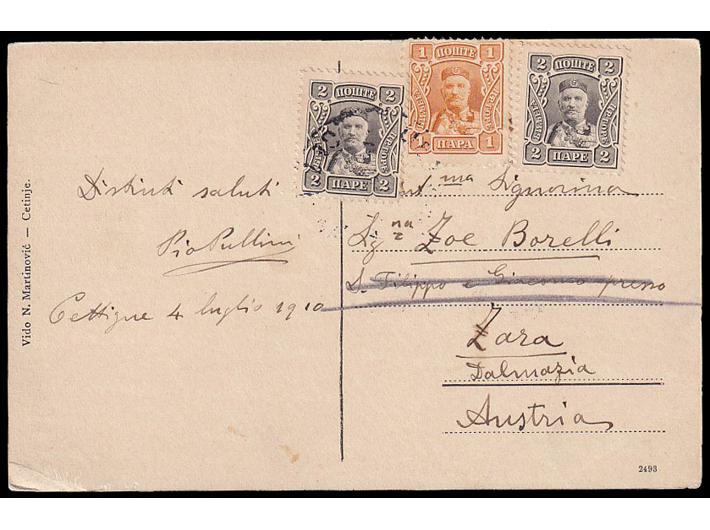 2 ПОШТЕ 2
2 ПАРЕ 2
1 ПОШТЕ 1
1 ПАРА 1
2 ПОШТЕ 2
2 ПАРЕ 2
Distinti saluti
Pio Pullini
Cettigne 4 luglio 1910
ma Signorina
Sig na
Zoe Borelli
S. Filippo e Giacomo presso
Zara
Dalmazia
Austria
Vido N. Martinović — Cetinje.
2493